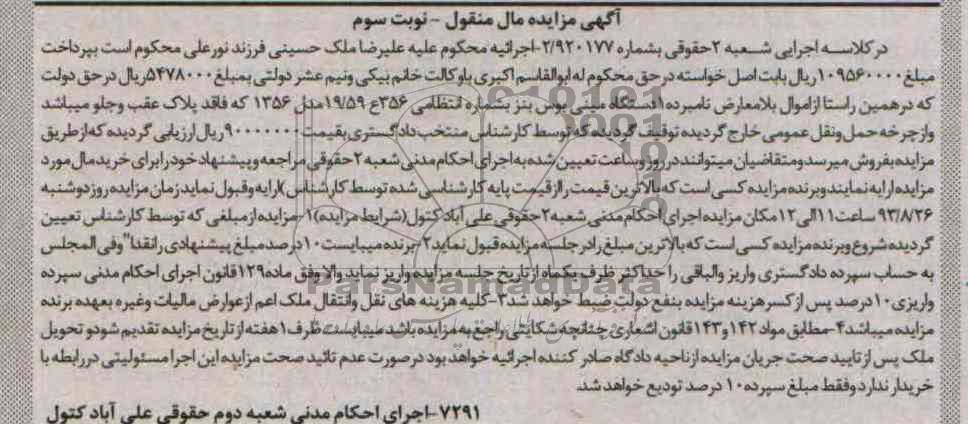 آگهی مزایده مال منقول - نوبت سوم
درکلاسه اجرایی شعبه ۲حقوقی بشماره ۲/۹۲۰۱۷۷-اجرائیه محکوم علیه علیرضا ملک حسینی فرزند نورعلی محکوم است بپرداخت
مبلغ۱۰۹۵۶۰۰۰۰ریال بابت اصل خواسته درحق محکوم له ابوالقاسم اکبری باوکالت خانم بیکی ونیم عشر دولتی بمبلغ۵۴۷۸۰۰۰ریال درحق دولت
که درهمین راستا ازاموال بلامعارض نامبرده۱دستگاه مینی بوس بنز بشماره انتظامی ۳۵۶ع۱۹/۵۹مدل ۱۳۵۶ که فاقد پلاک عقب وجلو میباشد
وازچرخه حمل ونقل عمومی خارج گردیده توقیف گردیده که توسط کارشناس منتخب دادگستری بقیمت۹۰۰۰۰۰۰۰ریال ارزیابی گردیده که ازطریق
مزایده بفروش میرسد ومتقاضیان میتوانند در روز وساعت تعیین شده به اجرای احکام مدنی شعبه ۲حقوقی مراجعه وپیشنهاد خود را برای خرید مال مورد
مزایده ارایه نمایند وبرنده مزایده کسی است که بالاترین قیمت را ازقیمت پایه کارشناسی شده توسط کارشناس )ارایه وقبول نماید زمان مزایده روز دوشنبه
۹۳/۸/۲۶ ساعت۱۱الی۱۲مکان مزایده اجرای احکام مدنی شعبه ۲حقوقی علی آباد کتول(شرایط مزایده)۱-مزایده از مبلغی که توسط کارشناس تعیین
گردیده شروع وبرنده مزایده کسی است که بالاترین مبلغ را در جلسه مزایده قبول نماید۲-برنده میبایست۱۰درصد مبلغ پیشنهادی را نقدا" وفی المجلس
به حساب سپرده دادگستری واریز والباقی را حداکثر ظرف یکماه از تاریخ جلسه مزایده واریز نماید والا وفق ماده۱۲۹قانون اجرای احکام مدنی سپرده
واریزی۱۰درصد پس از کسر هزینه مزایده بنفع دولت ضبط خواهد شد۳-کلیه هزینه های نقل وانتقال ملک اعم از عوارض مالیات وغیره بعهده برنده
مزایده میباشد۴-مطابق مواد ۱۴۲و۱۴۳قانون اشعاری چنانچه شکایتی راجع به مزایده باشد میبایست ظرف۱هفته از تاریخ مزایده تقدیم شود و تحویل
ملک پس از تایید صحت جریان مزایده از ناحیه دادگاه صادر کننده اجرائیه خواهد بود در صورت عدم تائید صحت مزایده این اجرا مسئولیتی در رابطه با
خریدار ندارد وفقط مبلغ سپرده۱۰ درصد تودیع خواهد شد.
۷۲۹۱-اجرای احکام مدنی شعبه دوم حقوقی علی آباد کتول
ParsNamadData